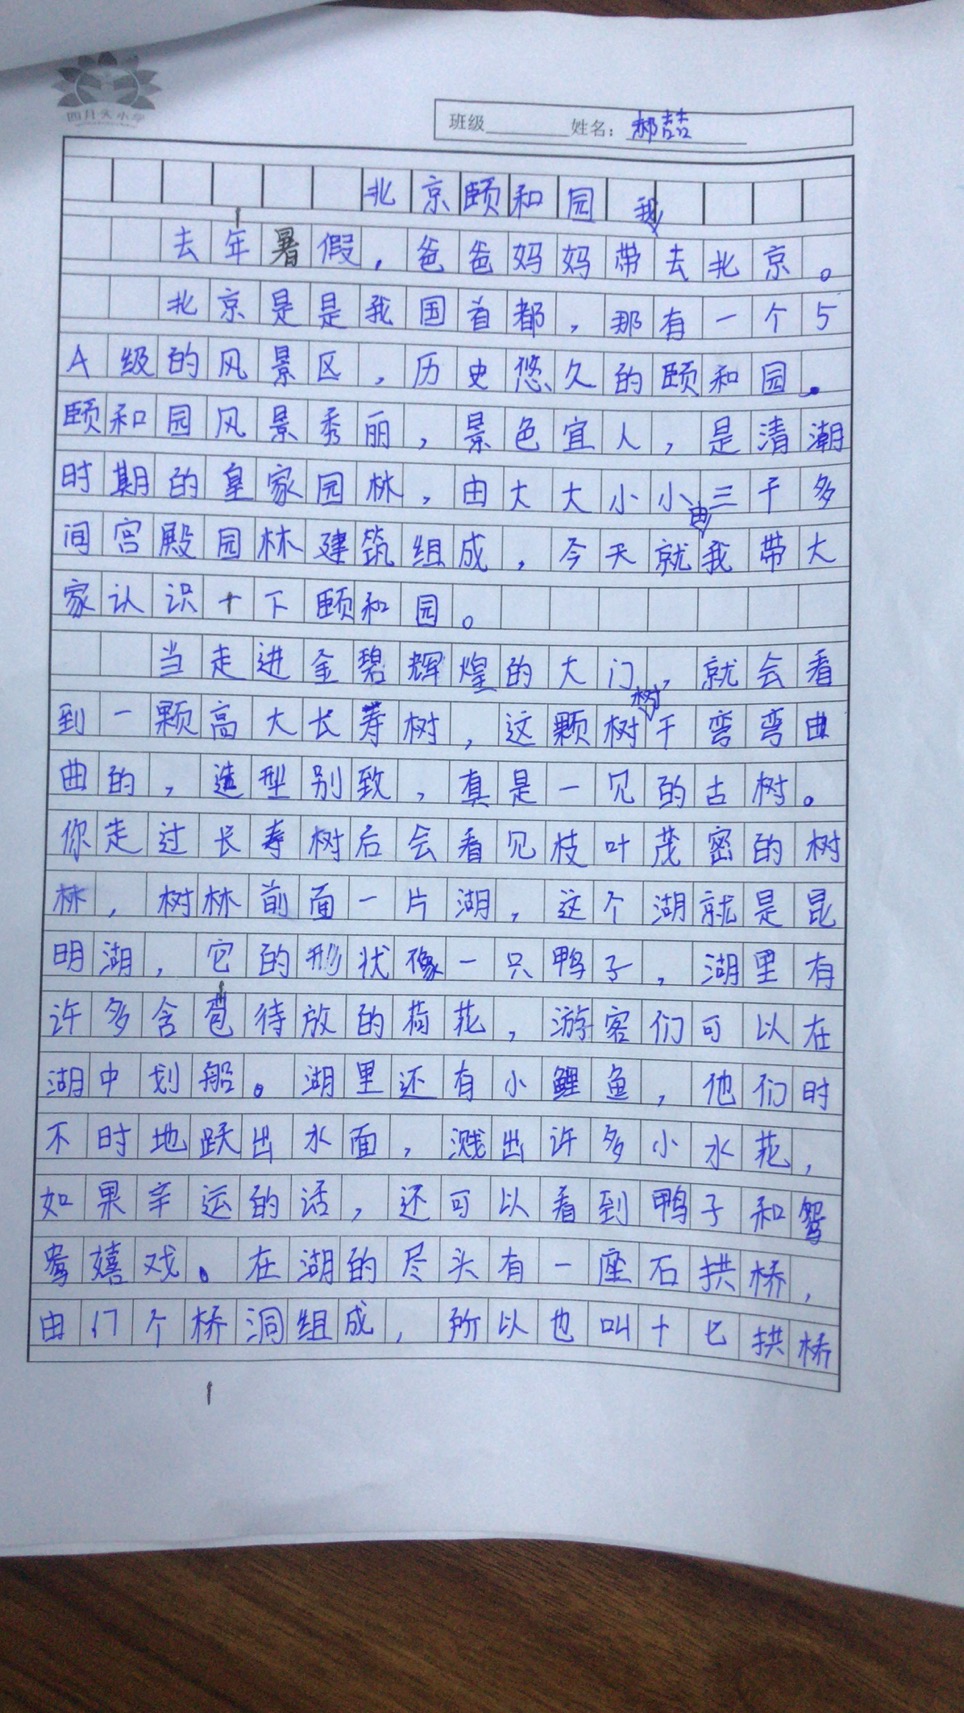 四月天小学
班级 姓名：郝喆
北京颐和园
去年暑假，爸爸妈妈带我去北京。
北京是是我国首都，那有一个5
A级的风景区，历史悠久的颐和园。
颐和园风景秀丽，景色宜人，是清潮
时期的皇家园林，由大大小小三千多
间宫殿园林建筑组成，今天就由我带大
家认识十下颐和园。
当走进金碧辉煌的大门，就会看
到一颗高大长寿树，这颗树树干弯弯曲
曲的，造型别致，真是一见的古树。
你走过长寿树后会看见枝叶茂密的树
林，树林前面一片湖，这个湖就是昆
明湖，它的形状像一只鸭子，湖里有
许多含苞待放的荷花，游客们可以在
湖中划船。湖里还有小鲤鱼，他们时
不时地跃出水面，溅出许多小水花，
如果辛运的话，还可以看到鸭子和鸳
鸯嬉戏。在湖的尽头有一座石拱桥，
由17个桥洞组成，所以也叫十七拱桥